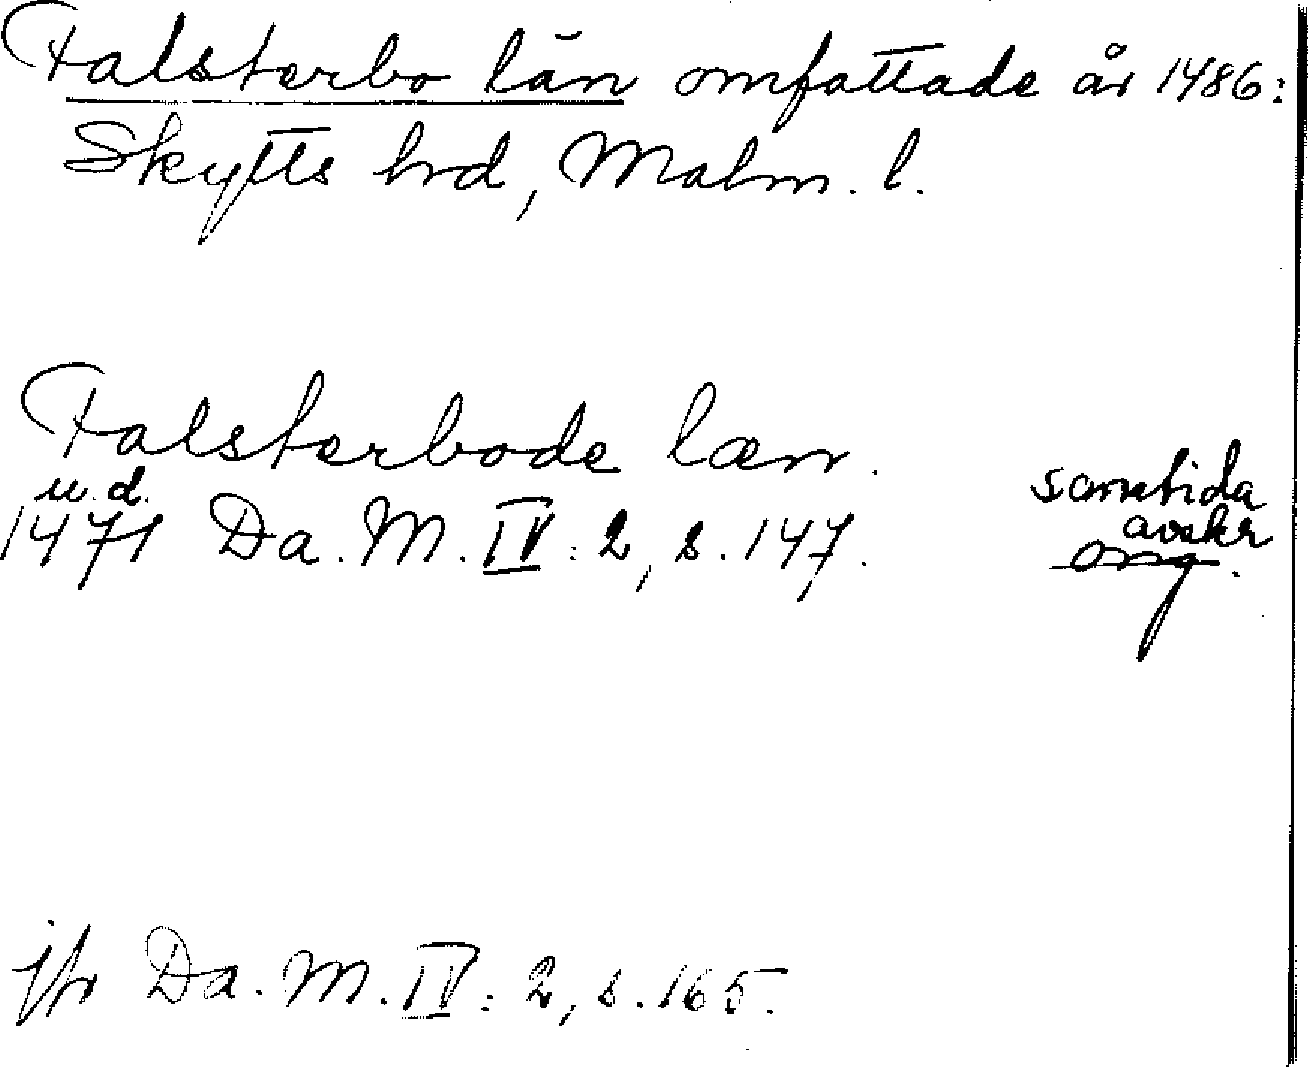 Falsterbo län omfattade år 1486:
Skytts hrd, Malm. l.
Falsterbode læn.
u. d.
1471 Da. M. IV: 2, s. 147.
samtida
avskr
orig.
jfr Da. M. IV: 2, s. 165.